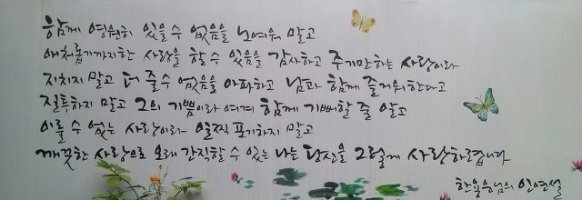 함께 영원히 있을 수 없음을 노여워 말고
애처롭기까지한 사랑을 할 수 있음을 감사하고 주기만하는 사랑이라
지치지 말고 더 줄 수 없음을 아파하고 남과 함께 즐거워한다고
질투하지 말고 그의 기쁨이라 여겨 함께 기뻐할 줄 알고
이룰 수 없는 사랑이라 일찍 포기하지 말고
깨끗한 사랑으로 오래 간직할 수 있는 나는 당신을 그렇게 사랑하렵니다
한용운님의 인연설